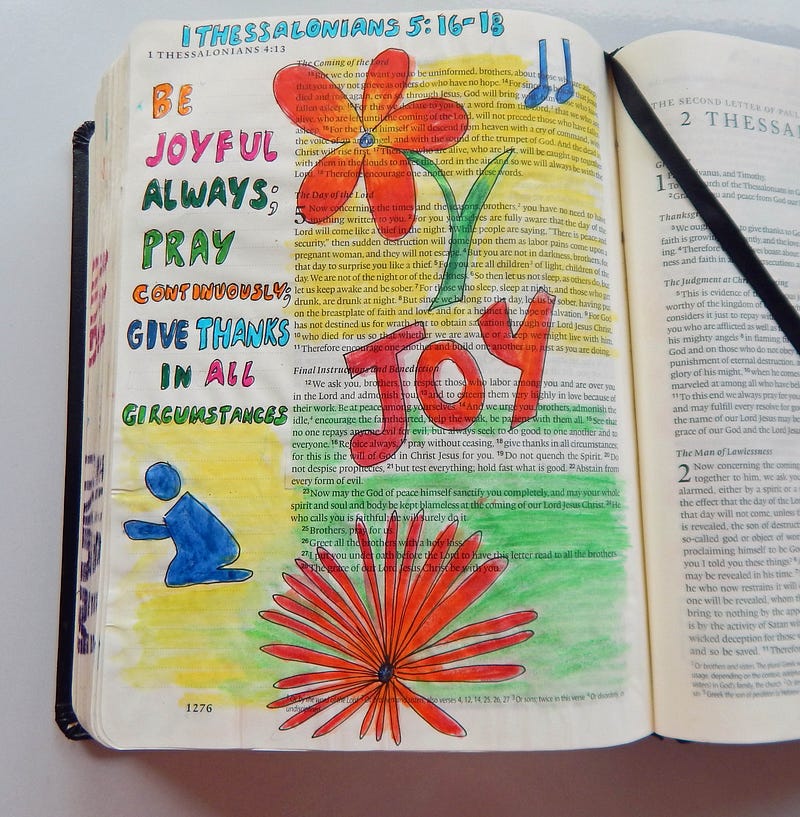 1 THESSALONIANS 5:16-18
1 THESSALONIANS 4:13
BE
JOYFUL
ALWAYS;
PRAY
CONTINUOUSLY;
GIVE THANKS
IN ALL
CIRCUMSTANCES
The Coming of the Lord
13 But we do not want you to be uninformed, brothers, about those who are
that you may not grieve as others do who have no hope. 14 For since we
died and rose again, even so, through Jesus, God will bring with
fallen asleep. 15 For this we declare to you a word from the Lord, that we who are
alive, who are left until the coming of the Lord, will not precede those who have
asleep. 16 For the Lord himself will descend from heaven with a cry of command, with
the voice of and with the sound of the trumpet of God. And the dead
Christ will rise first. 17 Then we who are alive, who are left, will be caught up together
with them in the clouds to meet the Lord in the air, and so we will always be with the
Lord. 18 Therefore encourage one another with these words.
The Day of the Lord
5 Now concerning the times and the seasons, brothers, you have no need to have
anything written to you. 2 For you yourselves are fully aware that the day of the
Lord will come like a thief in the night. 3 While people are saying, "There is peace and
security," then sudden destruction will come upon them as labor pains come upon a
pregnant woman, and they will not escape. 4 But you are not in darkness, brothers, for
that day to surprise you like a thief. 5 For you are all children of light, children of
the day. We are not of the night or of the darkness. 6 So then let us not sleep, as others do, but
let us keep awake and be sober. 7 For those who sleep, sleep at night, and those who get
drunk, are drunk at night. 8 But since we belong to the day, let us be sober, having put
on the breastplate of faith and love, and for a helmet the hope of salvation. 9 For God
has not destined us for wrath, but to obtain salvation through our Lord Jesus Christ,
10 who died for us so that whether we are awake or asleep we might live with him.
11 Therefore encourage one another and build one another up, just as you are doing.
JOY
Final Instructions and Benediction
12 We ask you, brothers, to respect those who labor among you and are over you
in the Lord and admonish you, 13 and to esteem them very highly in love because of
their work. Be at peace among yourselves. 14 And we urge you, brothers, admonish the
idle, encourage the fainthearted, help the weak, be patient with them all. 15 See that
no one repays anyone evil for evil, but always seek to do good to one another and to
everyone. 16 Rejoice always, 17 pray without ceasing, 18 give thanks in all circumstances;
for this is the will of God in Christ Jesus for you. 19 Do not quench the Spirit. 20 Do
not despise prophecies, 21 but test everything; hold fast what is good. 22 Abstain from
every form of evil.
23 Now may the God of peace himself sanctify you completely, and may your whole
spirit and soul and body be kept blameless at the coming of our Lord Jesus Christ. 24 He
who calls you is faithful; he will surely do it.
25 Brothers, pray for us.
26 Greet all the brothers with a holy kiss.
27 I put you under oath before the Lord to have this letter read to all the brothers.
28 The grace of our Lord Jesus Christ be with you.
1276
THE SECOND LETTER OF PAUL
2 THESSA
1 Silvanus, and Timothy,
To the church of the Thessalonians in G
2 Grace to you and peace from God our
Thanksgiving
3 We ought always to give thanks to Go
faith is growing abundantly, and the love
4 Therefore we ourselves boast about
ness and faith in
The Judgment at Christ's Coming
5 This is evidence of the
worthy of the kingdom of
considers it just to repay with
you who are afflicted as well as
his mighty angels 8 in flaming
God and on those who do not obey
punishment of eternal destruction,
glory of his might, 10 when he comes
marveled at among all who have bel
11 To this end we always pray for you
and may fulfill every resolve for go
the name of our Lord Jesus may be
grace of our God and the Lord Jesu
The Man of Lawlessness
2 Now concerning the coming
together to him, we ask you
alarmed, either by a spirit or a s
the effect that the day of the Lord
that day will not come, unless t
is revealed, the son of destruct
so-called god or object of wor
proclaiming himself to be Go
you I told you these things? 6
may be revealed in his time. 7
he who now restrains it will
one will be revealed, whom th
bring to nothing by the app
is by the activity of Satan wi
wicked deception for those
and so be saved. 11 Therefo